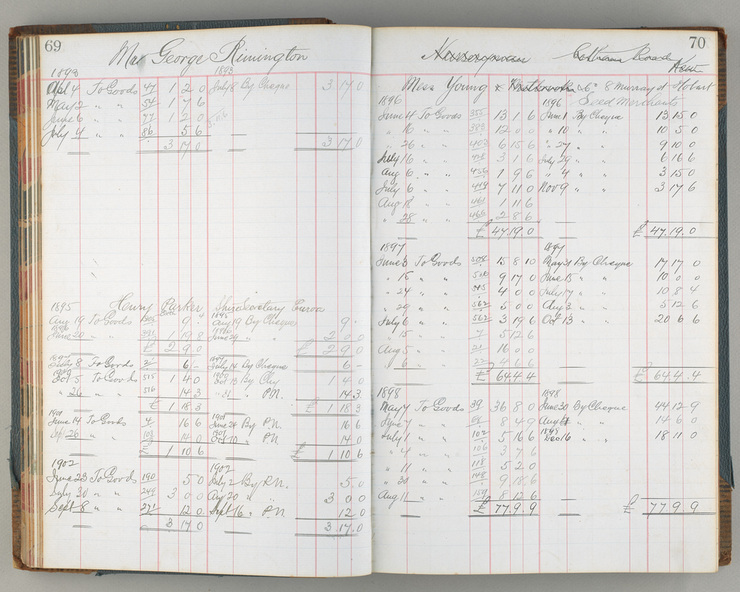 69
Mr George Rimington
1898 1898
Apl 4 To Goods 47 1 2 0 July 8 By Cheque 3 17 0
May 12 " " 54 1 7 6
June 6 " " 77 1 2 0
July 4 " " 86 5 6
3 17 0 3 17 0
1895 Henry Parker
Aug 19 To Goods 9 - Aug 19 By Cheque 9 -
June 20 " " 1 19 8 June 29 " 2 0 0
£ 2 9 0 £ 2 9 0
8 To Goods 6 - July 14 By Cheque 6 -
Oct 5 To Goods 515 1 4 0 Oct 13 By Chq 1 4 0
" 26 " " 516 14 3 " P.N. 14 3
£ 1 18 3 £ 1 18 3
1901 1901
June 14 To Goods 4 16 6 June 24 By P.N. 16 6
Sept 26 " 14 0 Oct 10 " P.N. 14 0
£ 1 10 6 £ 1 10 6
1902 1902
June 23 To Goods 190 5 0 July 2 By P.N. 5 0
July 30 " " 244 3 0 0 Aug 20 " " 3 0 0
Sept 8 " " 272 12 0 Sept 16 " P.N. 12 0
3 17 0 3 17 0
70
Nurseryman Road
Miss Young 8 Murray St Hobart
1896 1896 Seed Merchants
June 4 To Goods 355 13 1 6 June 1 By Cheque 13 15 0
" 16 " " 383 12 0 0 " 10 " " 10 5 0
" 26 " " 403 6 15 6 " 27 " " 9 10 0
July 16 " " 3 1 6 July 29 " " 6 16 6
Aug 6 " " 1 9 6 " 4 " " 3 15 0
July 6 " " 449 7 11 0 Nov 9 " " 3 17 6
Aug 18 " " 461 1 11 6
" 28 " " 465 2 8 6
£ 47 19 0 £ 47 19 0
1897 1897
June 8 To Goods 508 15 8 10 May 31 By Cheque 17 17 0
" 15 " " 526 9 17 0 June 15 " " 10 0 0
" 24 " " 545 4 0 0 July 17 " " 10 8 4
" 29 " " 562 5 0 0 Aug 3 " " 5 12 6
July 6 " " 562 3 19 6 Oct 13 " " 20 6 6
" 15 " " 7 5 12 6
Aug 5 " " 21 16 0 0
" 6 " " 22
£ 64 4 4 £ 64 4 4
1898 1898
May 7 To Goods 39 36 8 0 June 30 By Cheque 44 12 9
June 7 " " 8 4 9 Aug " " 14 6 0
July 1 " " 102 5 16 6 Dec 16 " " 18 11 0
" 4 " " 106 3 7 6
" 11 " " 118 5 2 0
" 30 " " 148 9 18 6
Aug 11 " " 159 8 12 6
£ 77 9 9 £ 77 9 9